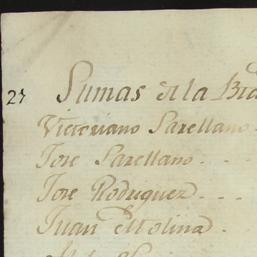 27 Sumas de la
Victoriano Sarellano
Jose Sarellano
Jose Rodriguez
Juan Molina